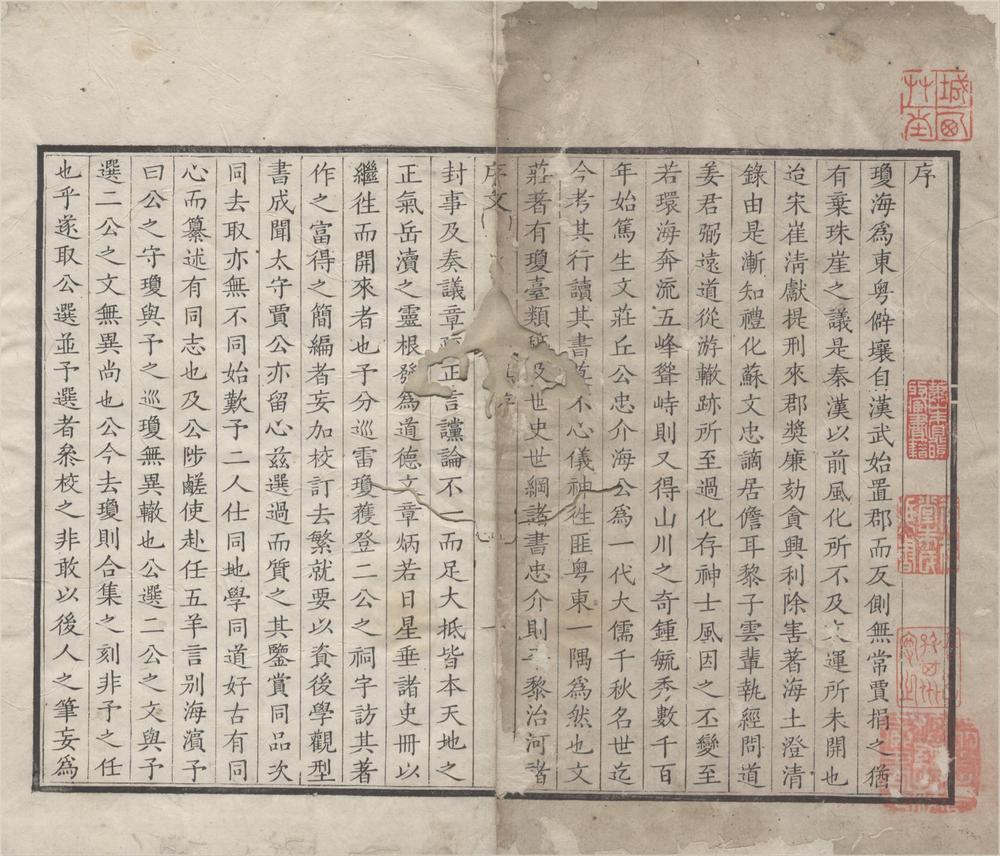 序
瓊海為東粵僻壤自漢武始置郡而反側無常賈捐之猶
有棄珠崖之議是秦漢以前風化所不及文運所未開也
迨宋崔清獻提刑來郡獎廉劾貪興利除害著海上澄清
錄由是漸知禮化蘇文忠謫居儋耳黎子雲輩執經問道
姜君弼遠道從游轍跡所至過化存神士風因之丕變至
若環海奔流五峰聳峙則又得山川之奇鍾毓秀數千百
年始篤生文莊丘公忠介海公為一代大儒千秋名世迄
今考其行讀其書不心儀神往匪粵東一隅為然也文
莊著有瓊臺類及世史世綱諸書忠介則平黎治河諸
序文
一
封事及奏議章正言讜論不一而足大抵皆本天地之
正氣岳瀆之靈根發為道德文章炳若日星垂諸史冊以
繼徃而開來者也予分巡雷瓊獲登二公之祠字訪其著
作之富得之簡編者妄加校訂去繁就要以資後學觀型
書成聞太守賈公亦留心茲選過而質之其鑒賞同品次
同去取亦無不同始歎予二人仕同地學同道好古有同
心而纂述有同志也及公陟鹺使赴任五羊言別海濱予
曰公之守瓊與予之巡瓊無異轍也公選二公之文與予
選二公之文無異尚也公今去瓊則合集之刻非予之任
也乎遂取公選並予選者叅校之非敢以後人之筆妄為